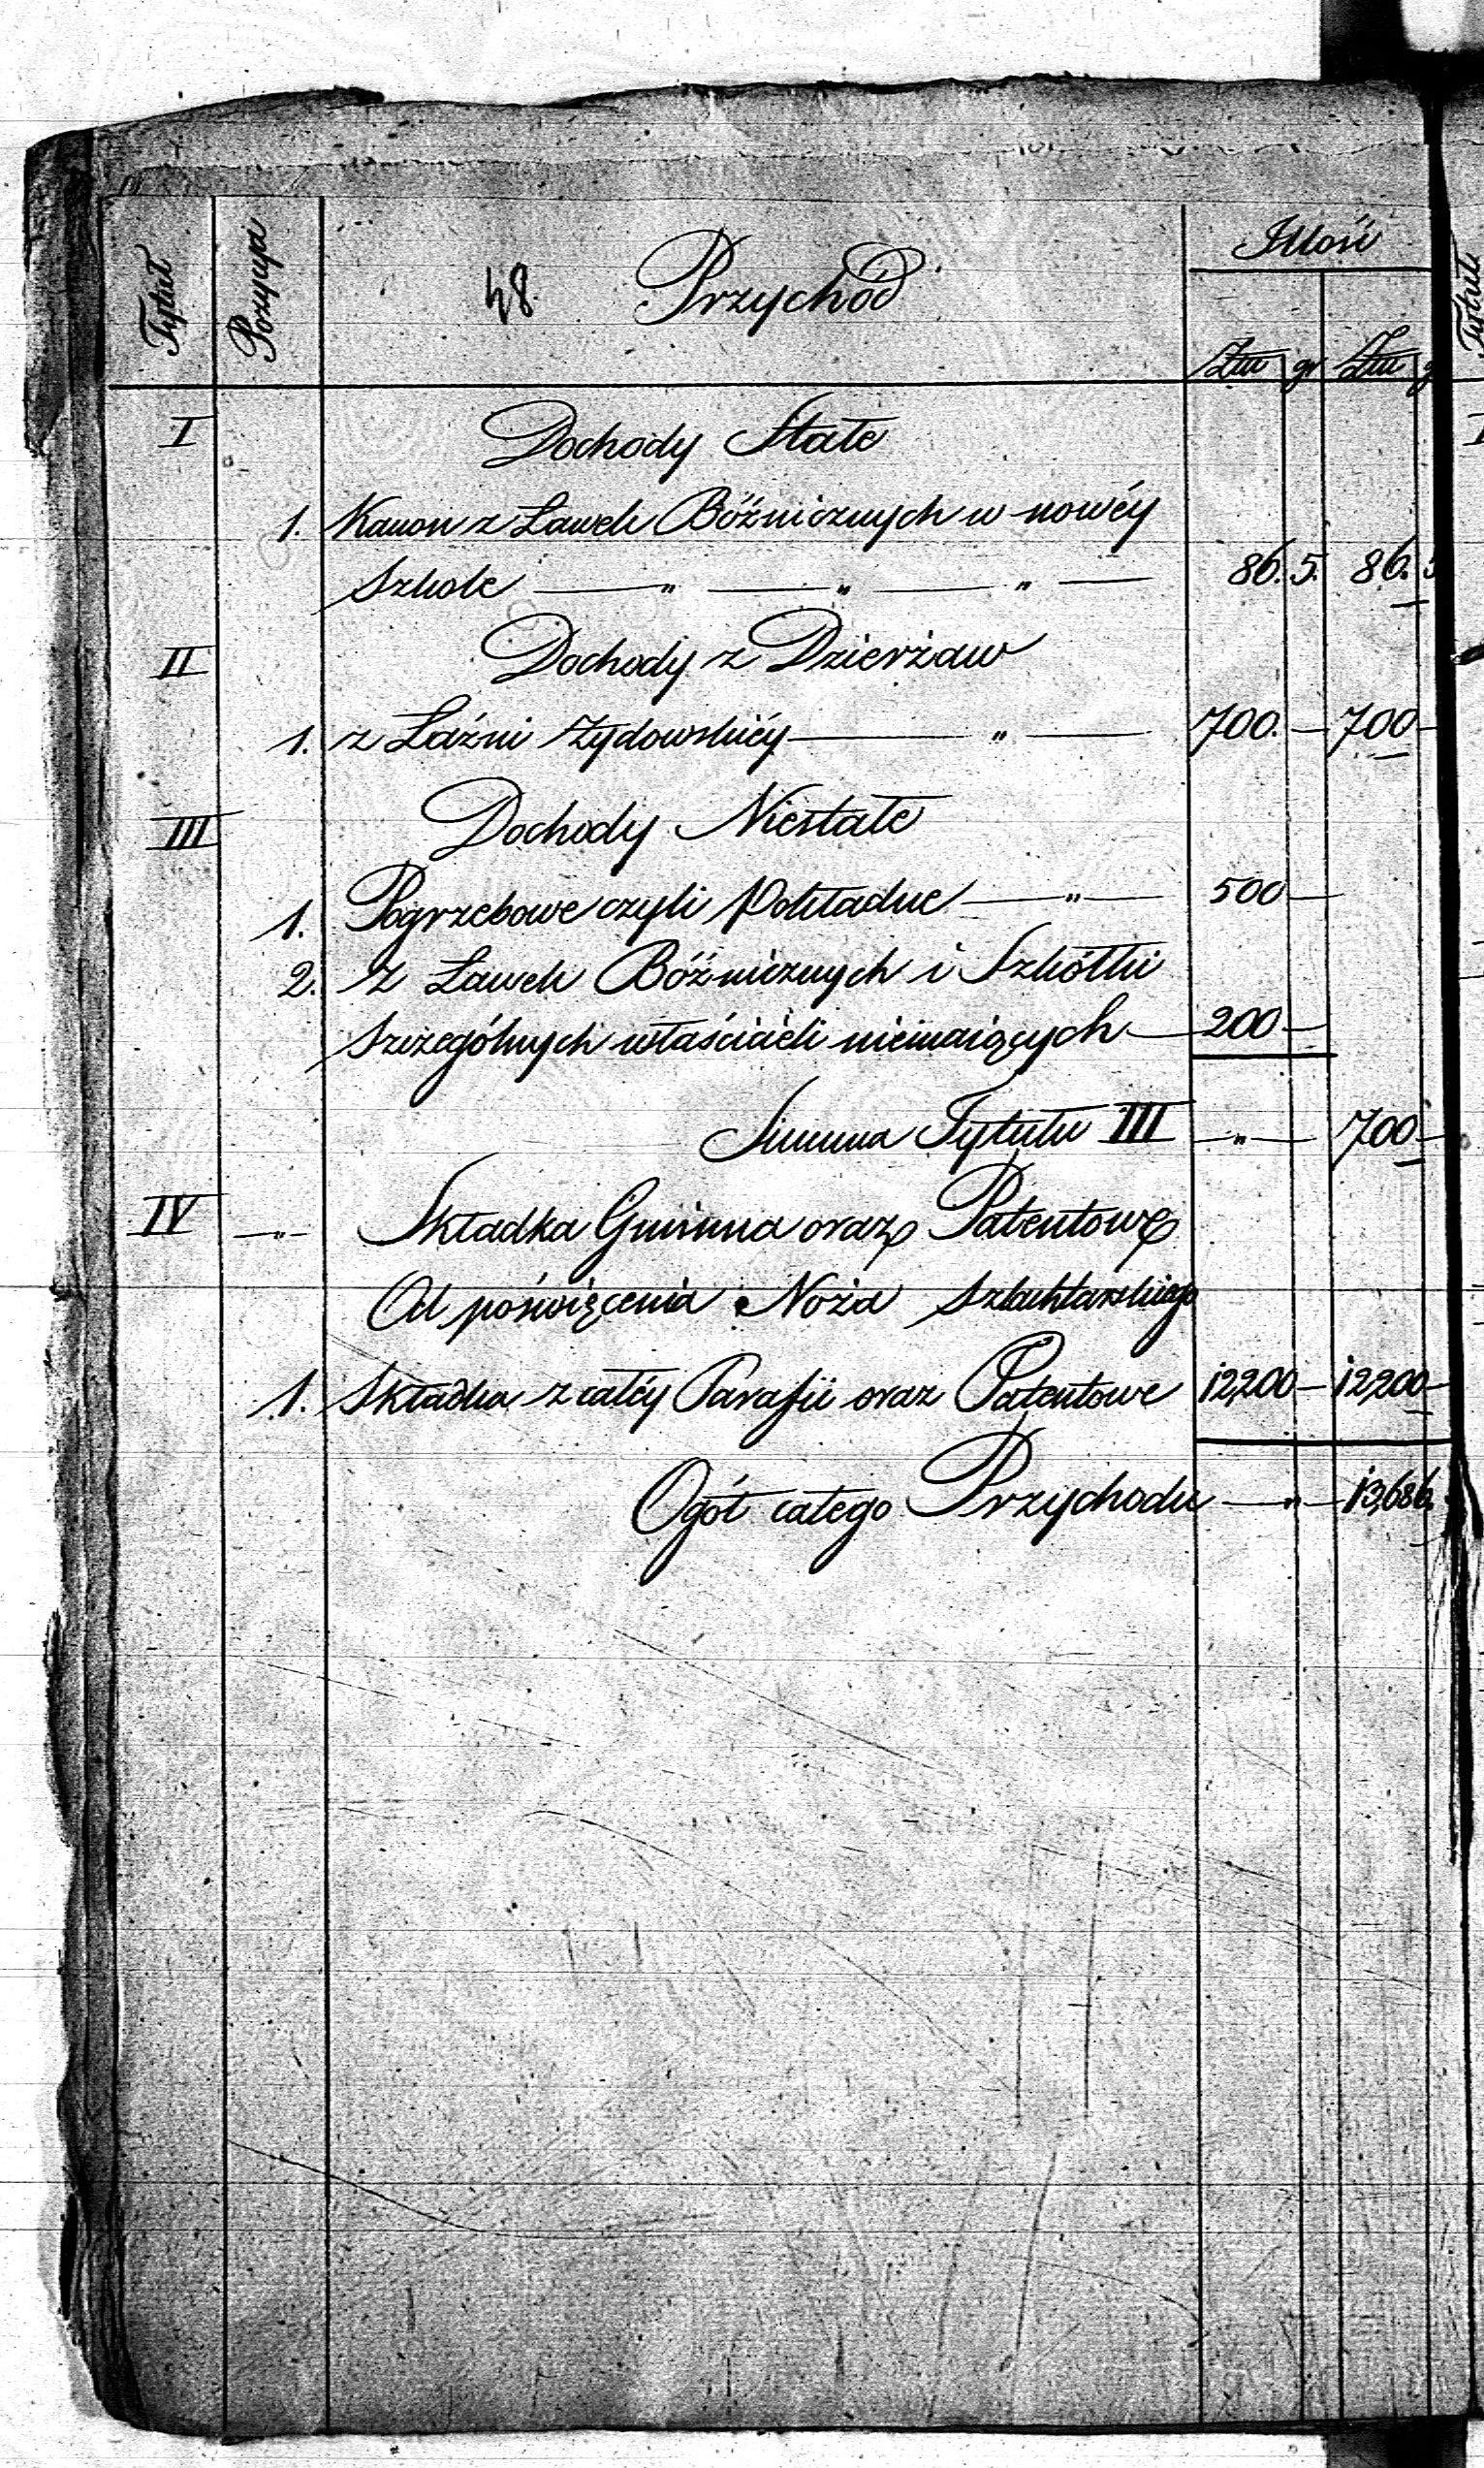 Tytuł Pozycya 48. Przychód Illość
Złtu gr Złtu g
I Dochody Stałe
1. Kanon z Ławek Bóżnicznych w nowéy
Szkole — " — " — " — 86. 5. 86. 5
II Dochody z Dzierżaw
1. z Łaźni Żydowskiéy — " — 700. — 700 —
III Dochody Niestałe
1. Pogrzebowe czyli Pokładne — " — 500 —
2. z Ławek Bóżnicznych i Szkółki
szczególnych właścicieli niemaiących — 200 —
Summa Tytułu III — " — 700 —
IV — " — Składka Gminna oraz Patentowe
Od poświęcenia Noża Szlachtarskiego
1. Składka z całéy Parafii oraz Patentowe 12,200 — 12,200 —
Ogół całego Przychodu — " — 13,686.